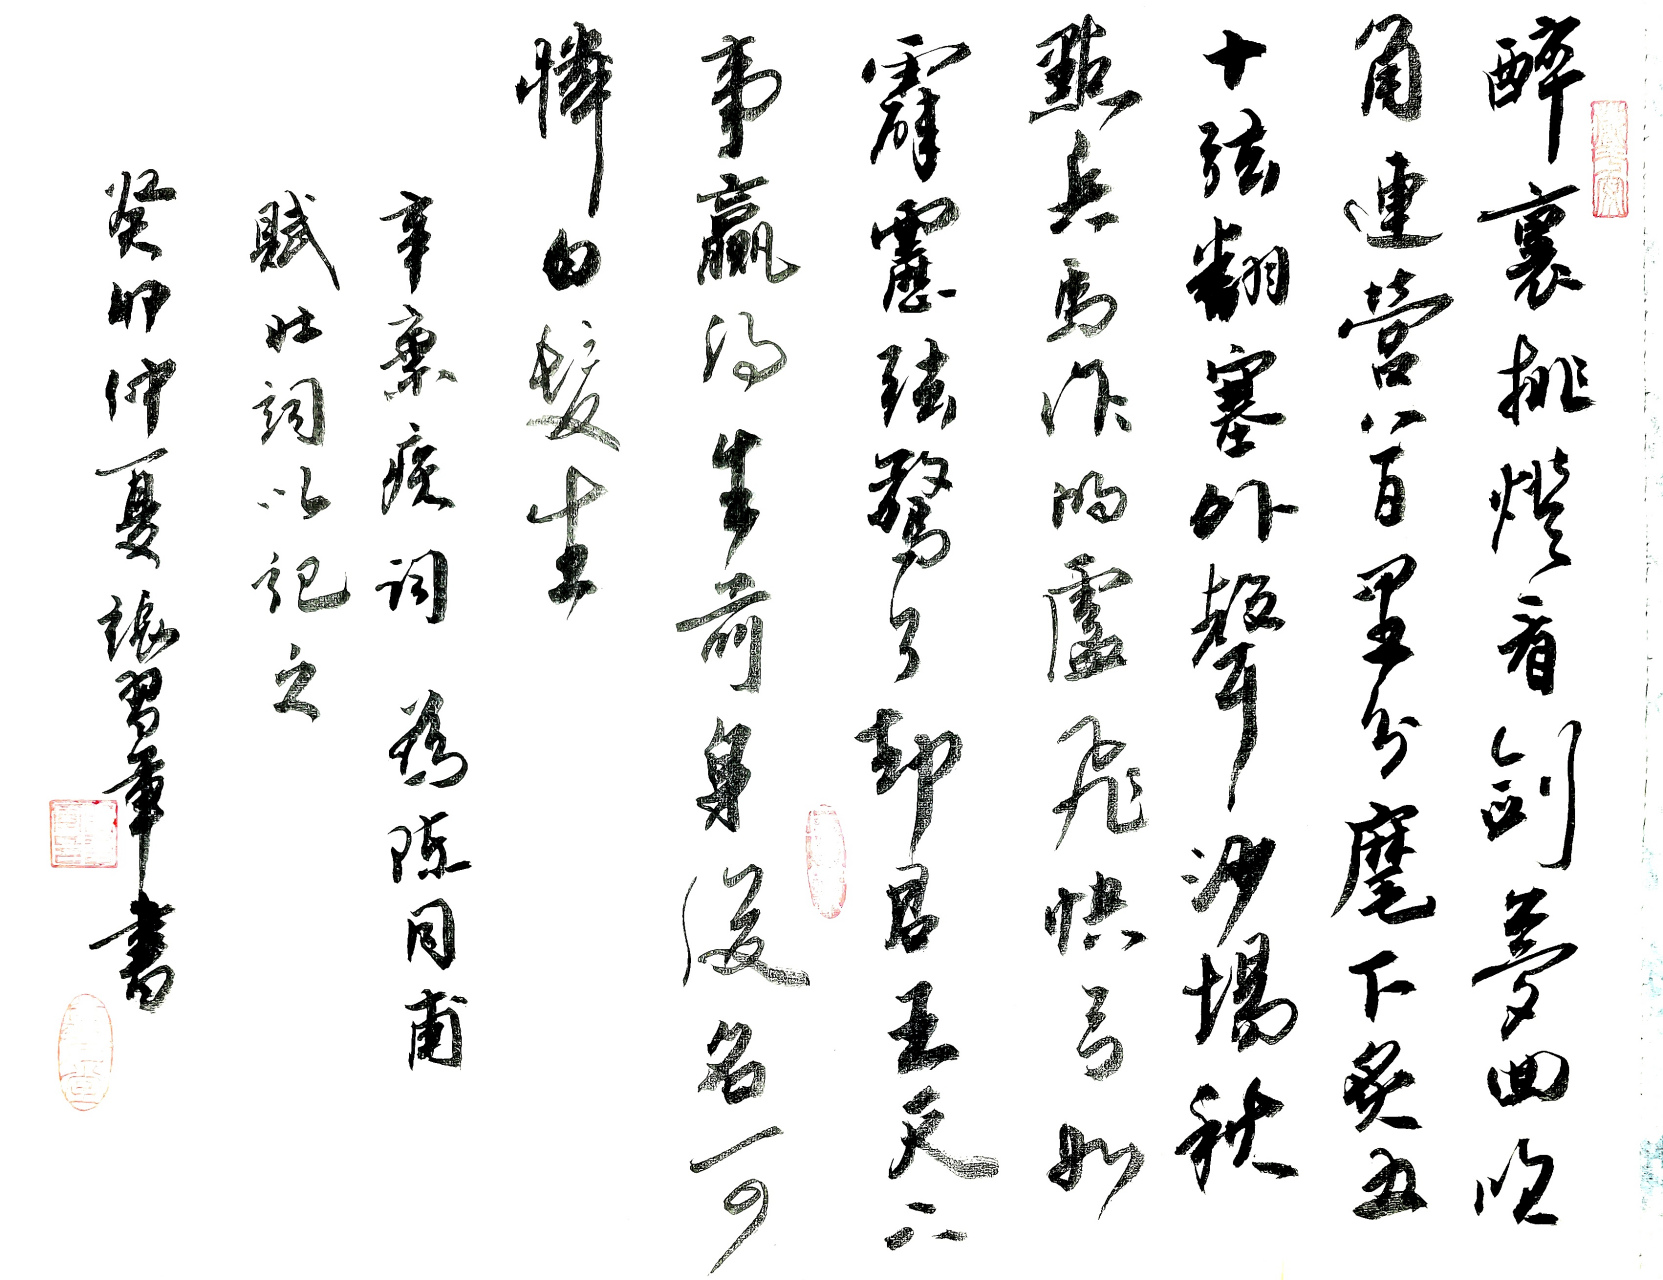 醉裏挑燈看劍夢回吹
角連營八百里分麾下炙五
十弦翻塞外聲沙場秋
點兵馬作的盧飛快弓如
霹靂弦驚了却君王天下
事贏得生前身後名可
憐白髮生
辛棄疾詞 為陳同甫
賦壯詞以記之
癸卯仲夏習軍書